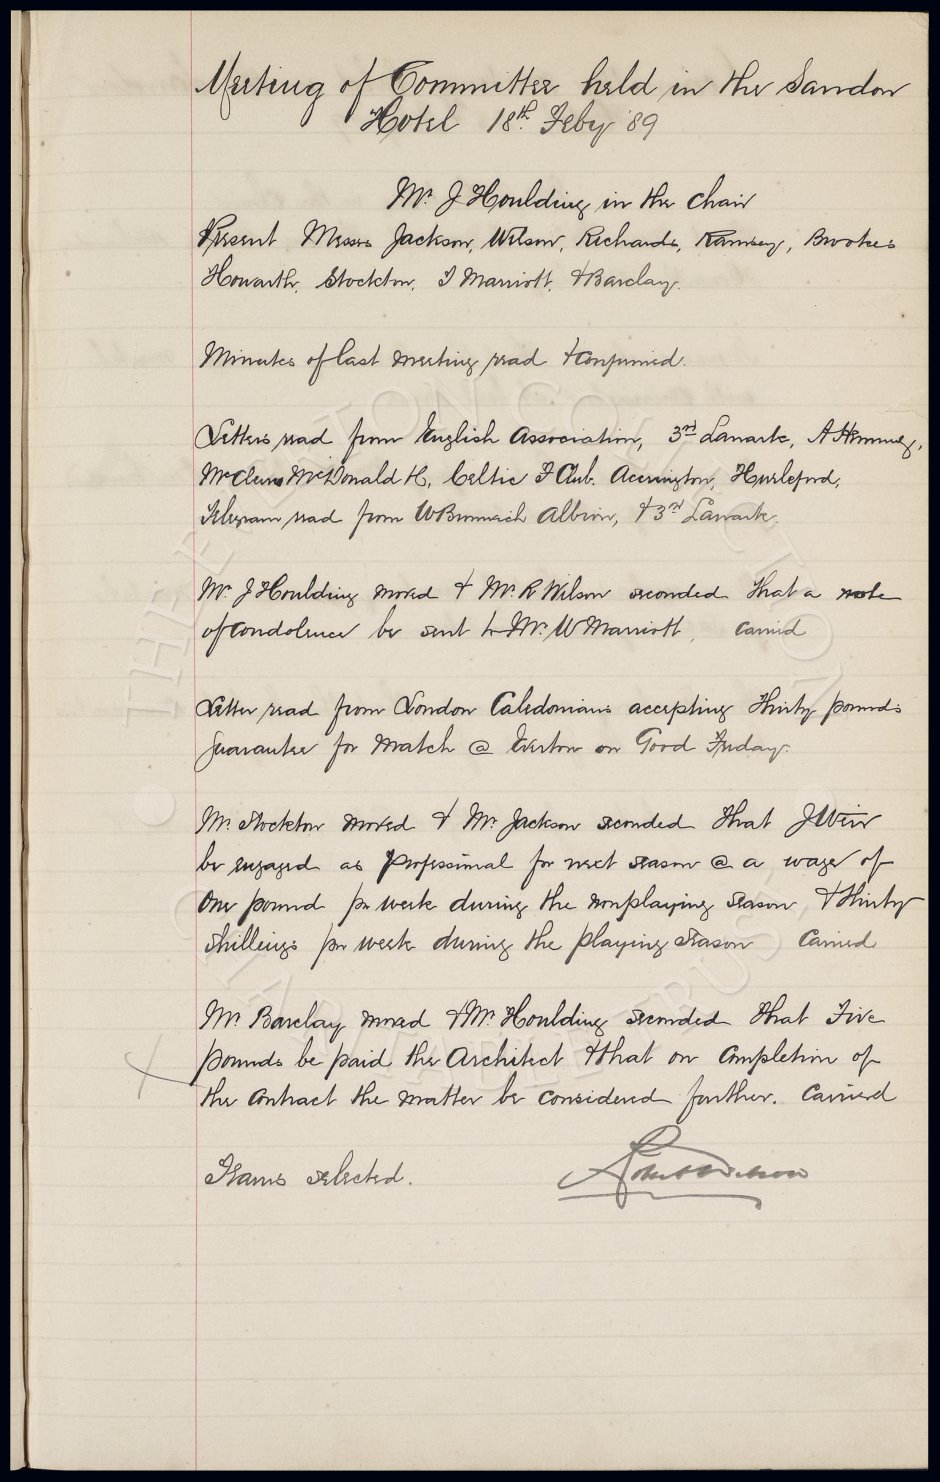 Meeting of Committee held in the Sandon
Hotel 18th Feby 89
Mr J Houlding in the chair
Present Messrs Jackson, Wilson, Richards, Ramsey, Brookes
Howarth, Stockton, T Marriott, & Barclay.
Minutes of last meeting read & confirmed.
Letters read from English Association, 3rd Lanark, A
McDonald H, Celtic F Club. Accrington, Hurleford,
Telegram read from W Bromwich Albion, & 3rd Lanark.
Mr. J Houlding moved & Mr. R Wilson seconded that a note
of condolence be sent to Mr. W Marriott, carried
Letter read from London Caledonians accepting thirty pounds
guarantee for match @ Everton on Good Friday.
Mr. Stockton moved & Mr. Jackson seconded that J Weir
be engaged as professional for next season @ a wage of
One pound per week during the nonplaying season, & thirty
shillings per week during the playing season carried
Mr Barclay moved & Mr. Houlding seconded that Five
pounds be paid the Architect & that on completion of
the contract the matter be considered further. Carried
Teams selected.
Robert Wilson
THE EVERTON COLLECTION
CHARITABLE TRUST